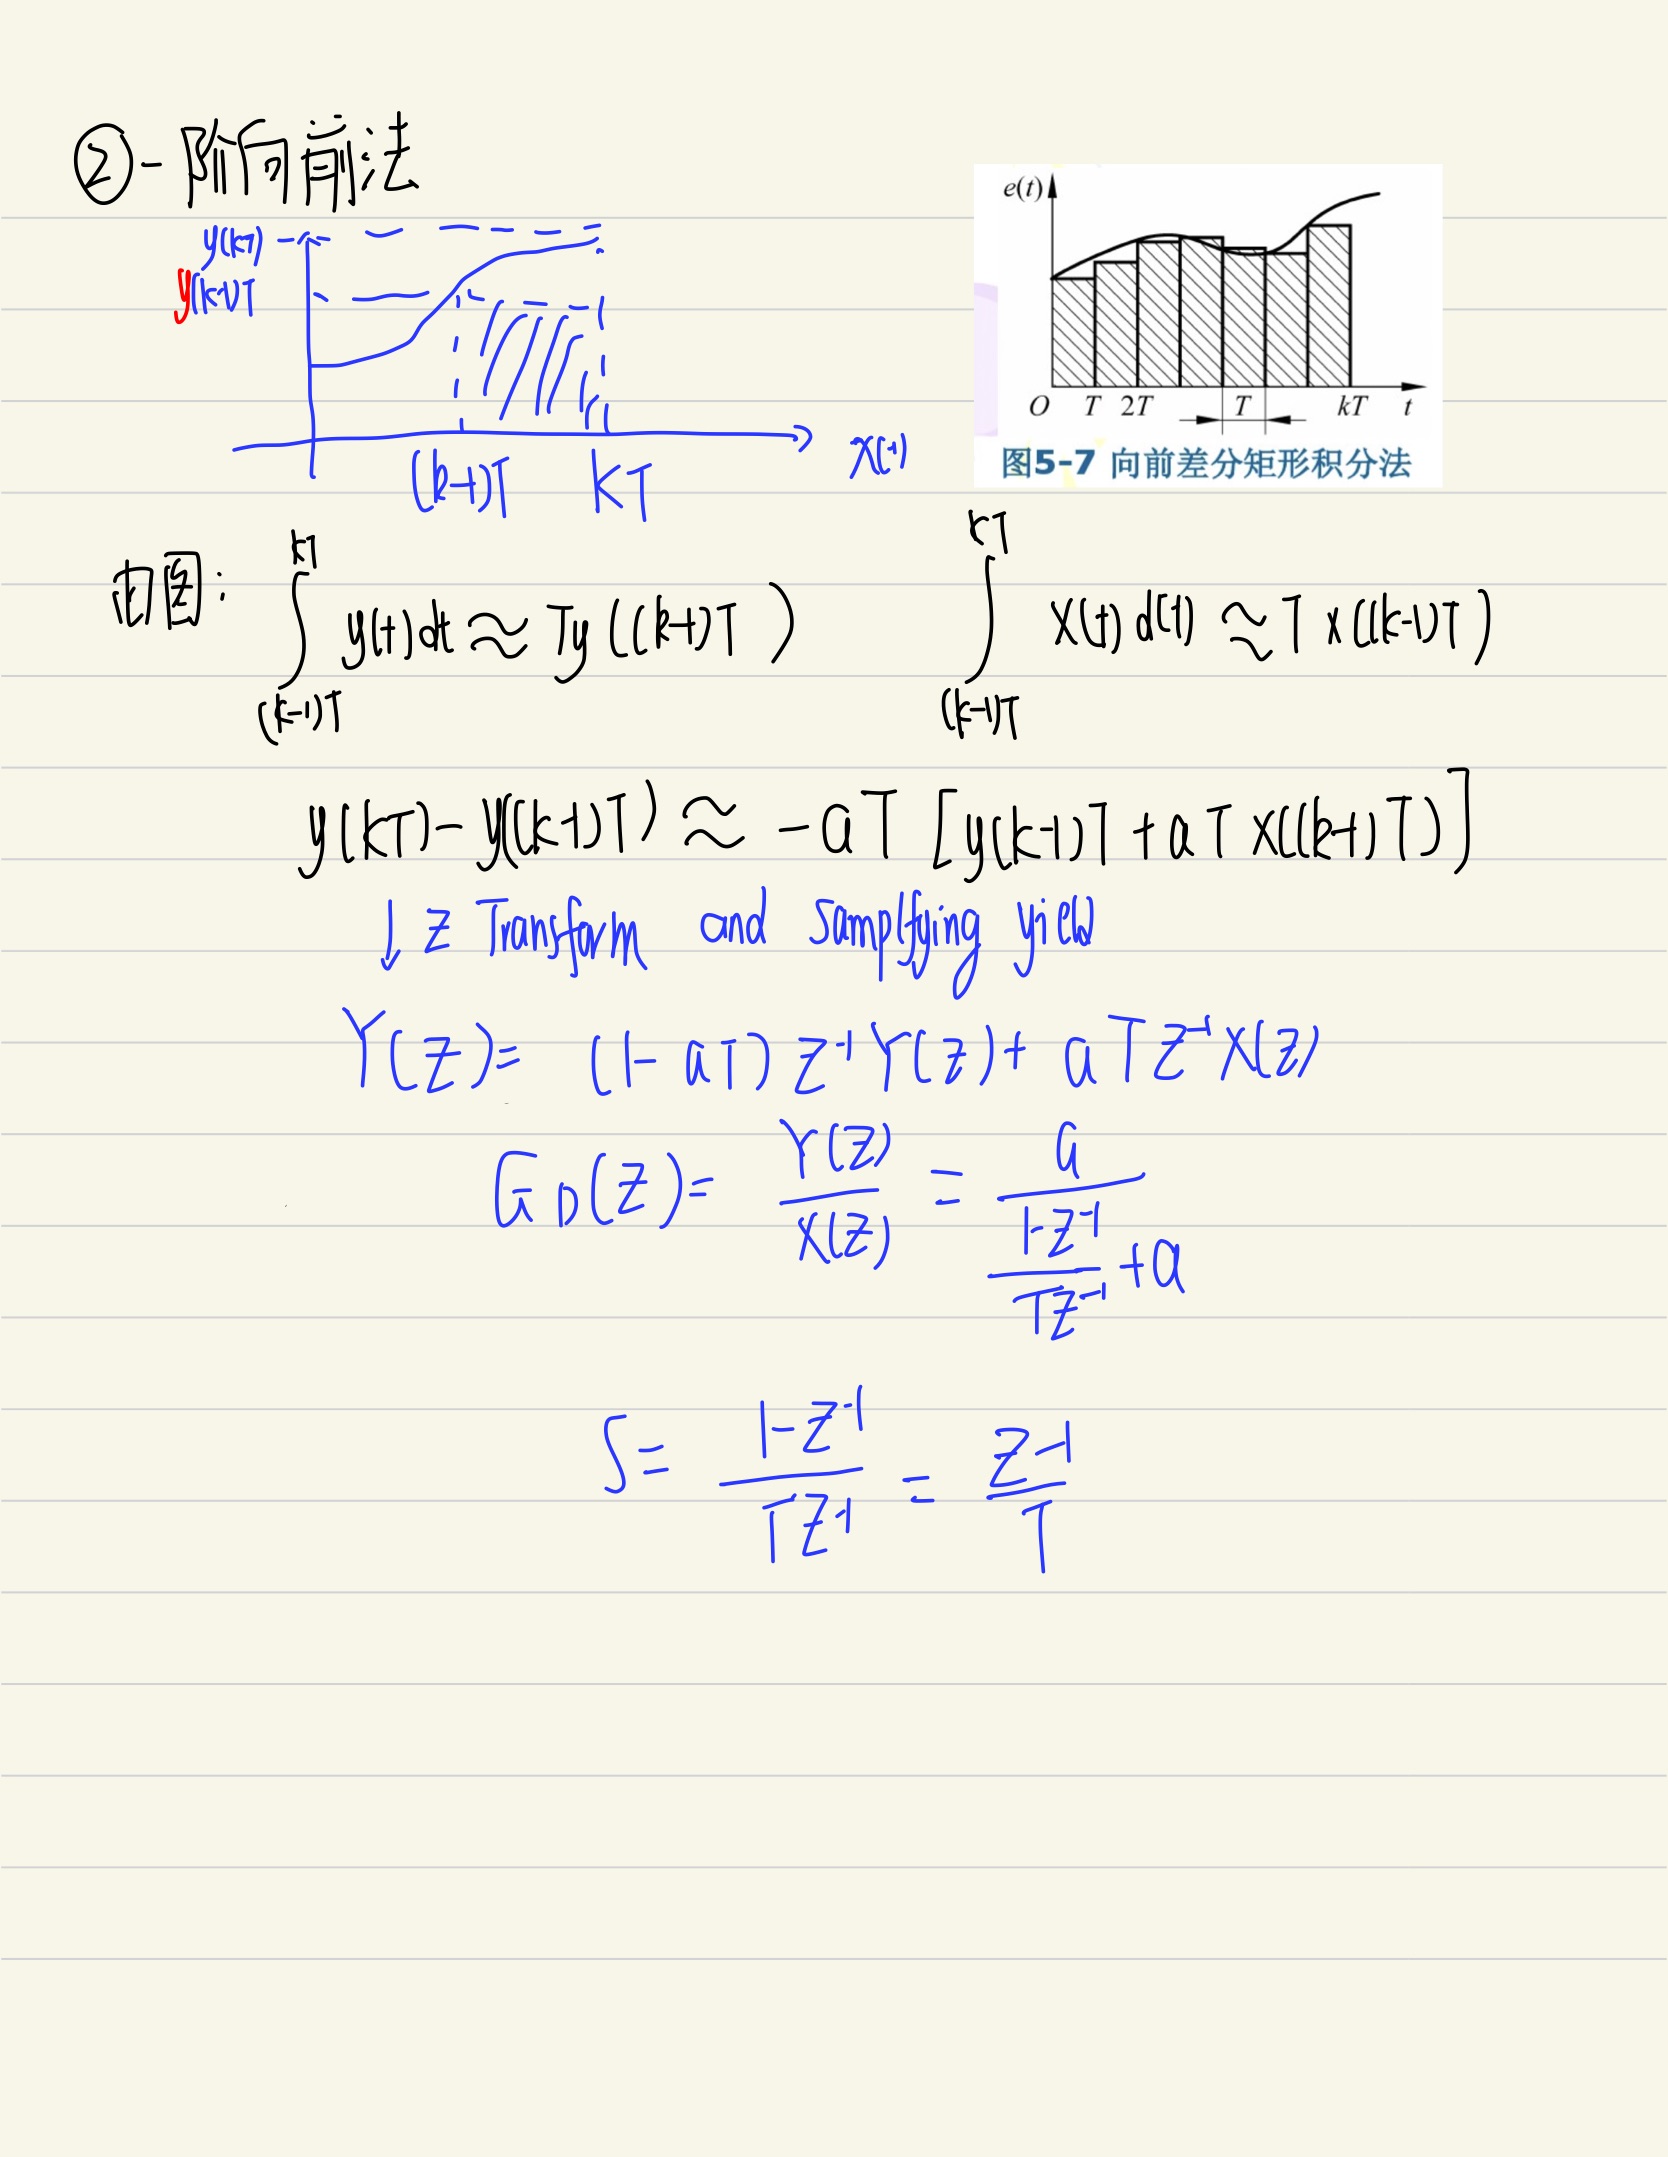 ②一阶向前法
y(kT)
y(k-1)T
(k-1)T kT x(t)
e(t)
O T 2T T kT t
图5-7 向前差分矩形积分法
由图: ∫_{(k-1)T}^{kT} y(t)dt ≈ Ty((k-1)T) ∫_{(k-1)T}^{kT} x(t)d(t) ≈ T x((k-1)T)
y(kT)-y((k-1)T) ≈ -aT [y(k-1)T + aT x((k-1)T)]
↓ z Transform and samplfying yield
Y(z)= (1-aT) z⁻¹Y(z)+ aTz⁻¹X(z)
G_D(z)= Y(z)/X(z) = a/((1-z⁻¹)/(Tz⁻¹)+a)
S= (1-z⁻¹)/(Tz⁻¹) = (z-1)/T